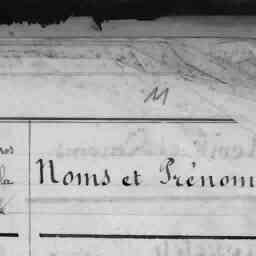 11
ros
la
Noms et Prénom